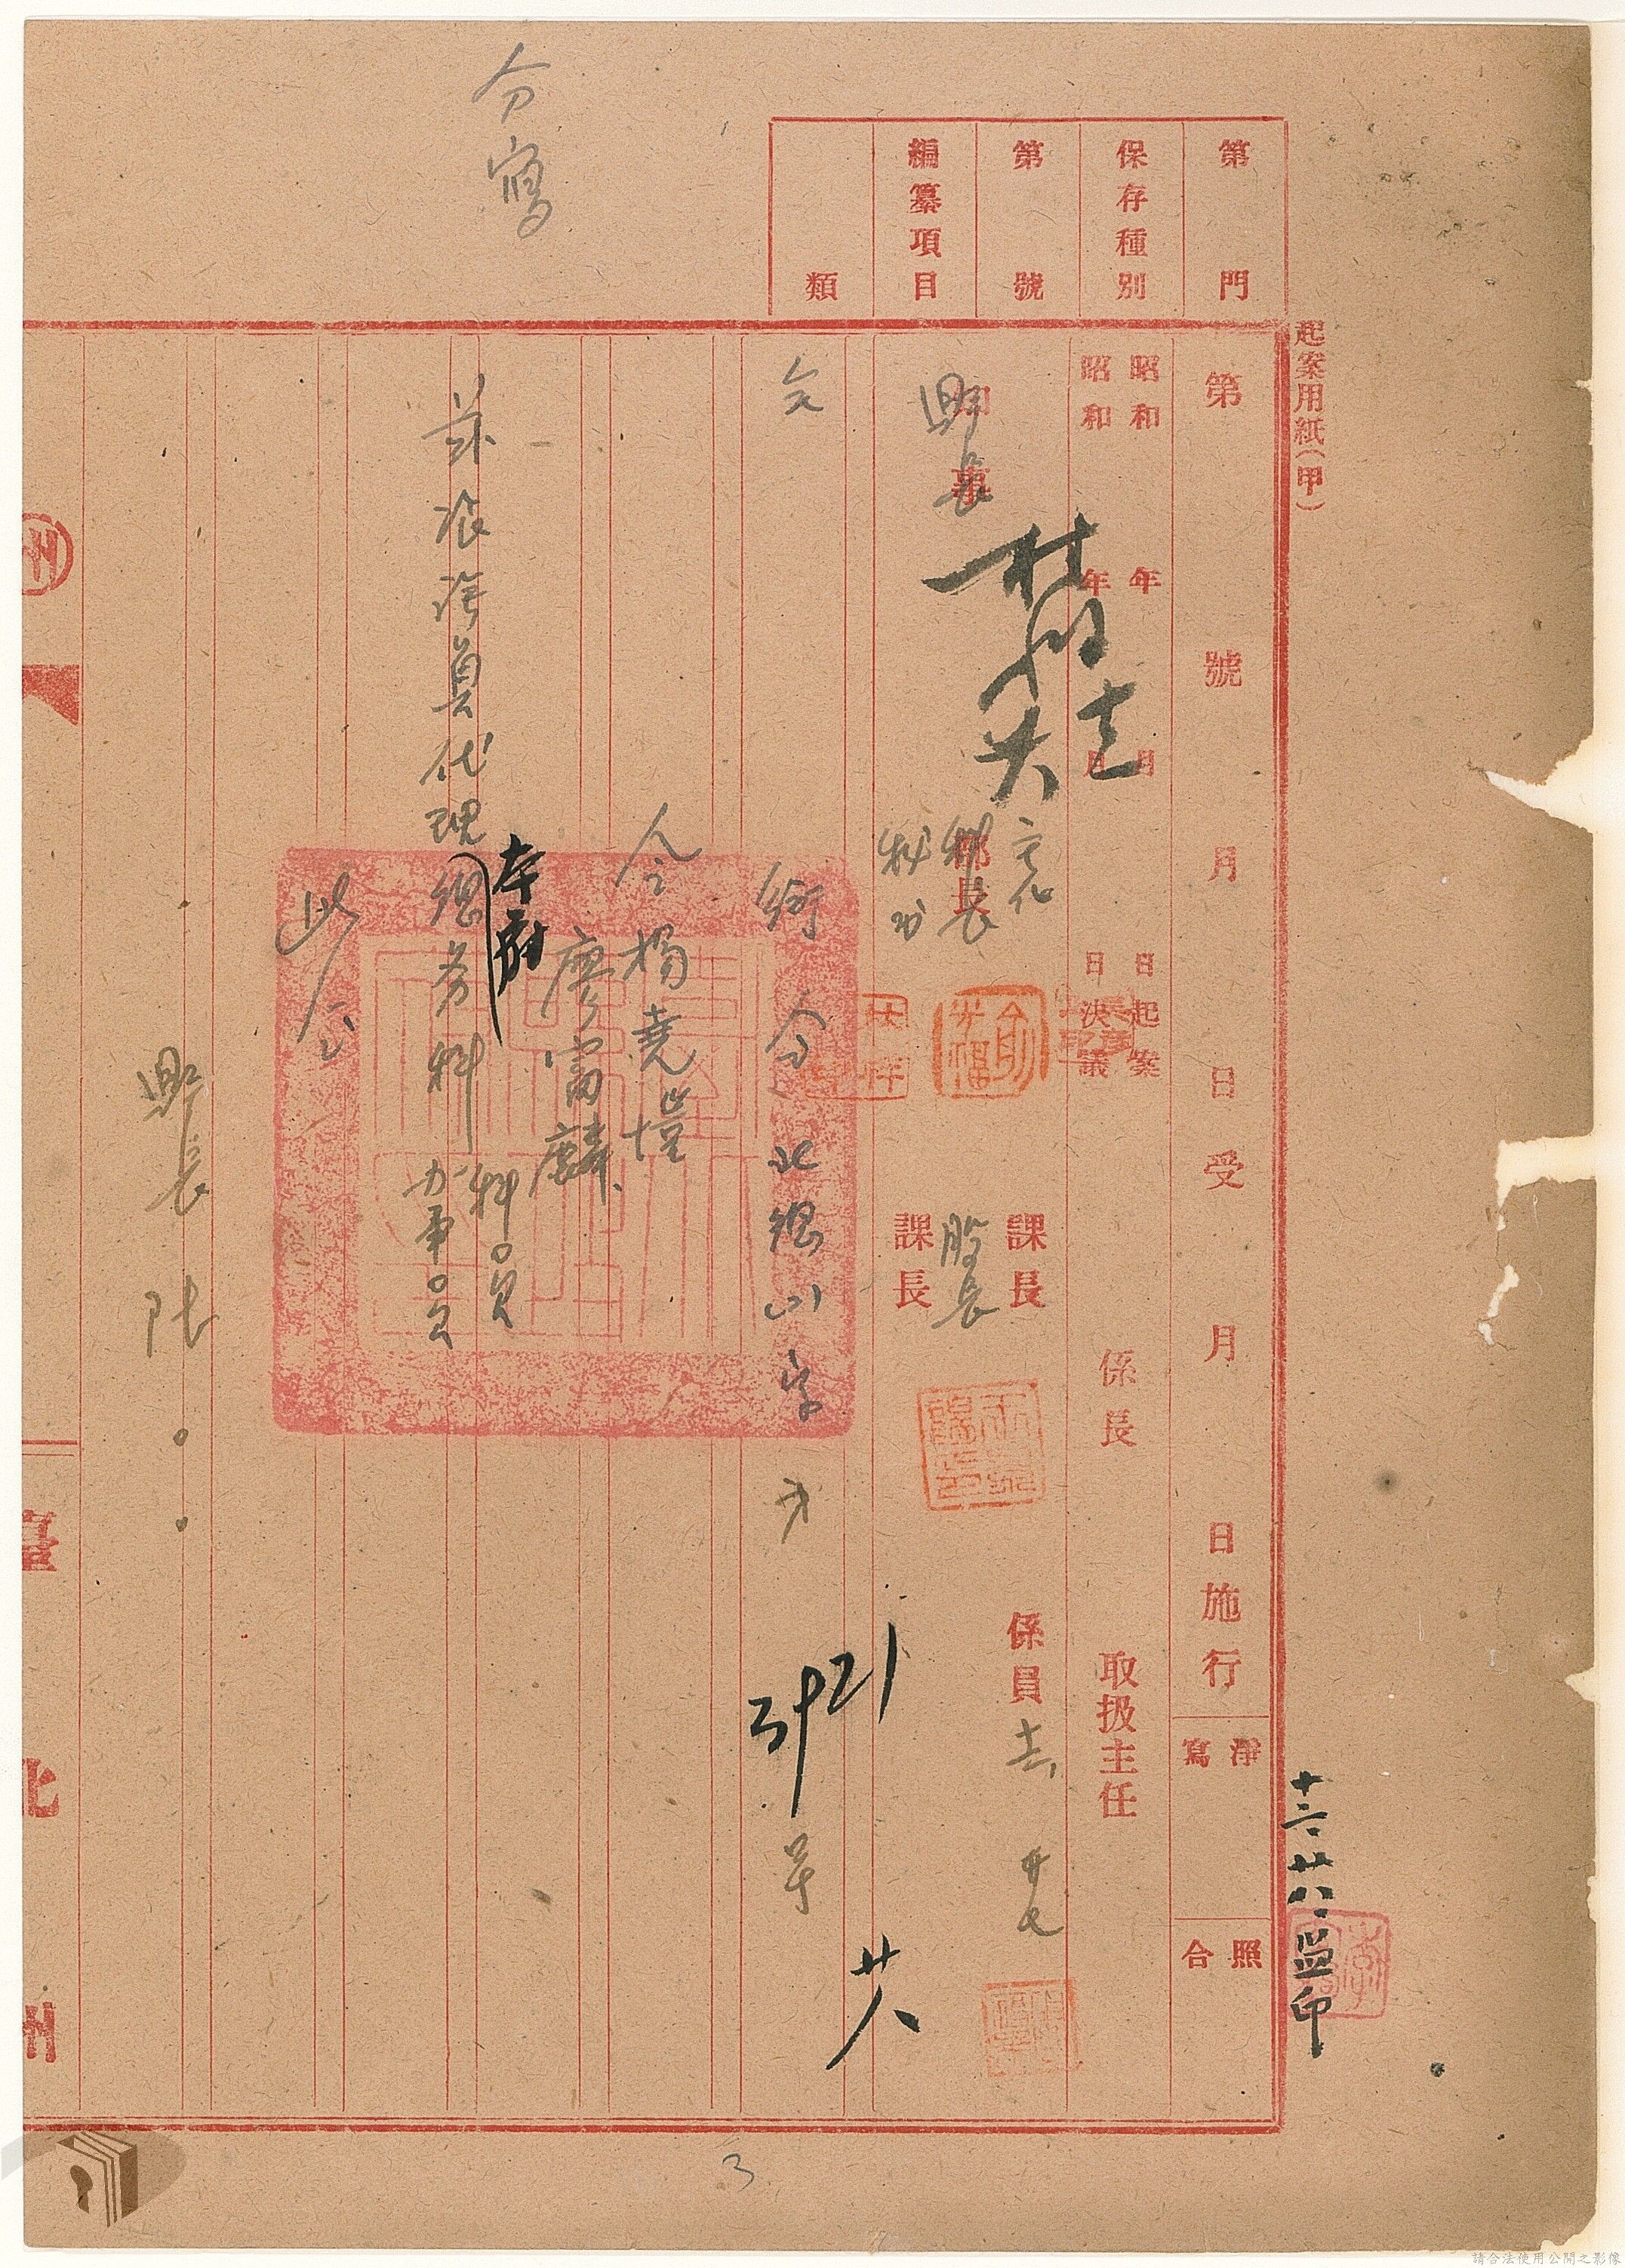 起案用紙(甲)
第 門
保存種別
第 號
編纂項目
類
第 號 月 日受 月 日施行
淨寫
照合
昭和 年 月 日起案
昭和 年 月 日決議
係長
取扱主任
知事
縣長
部長
秘書
課長
課長
股長
係員
十二、廿八、蓋印
分寫
銜 令 北總 字 第 號
3921
廿八
令楊堯
廖富麟
茲派該員代理總務科科員
辦事員
本府
此令
縣長 陸。。
臺
北
州
3
請合法使用公開之影像